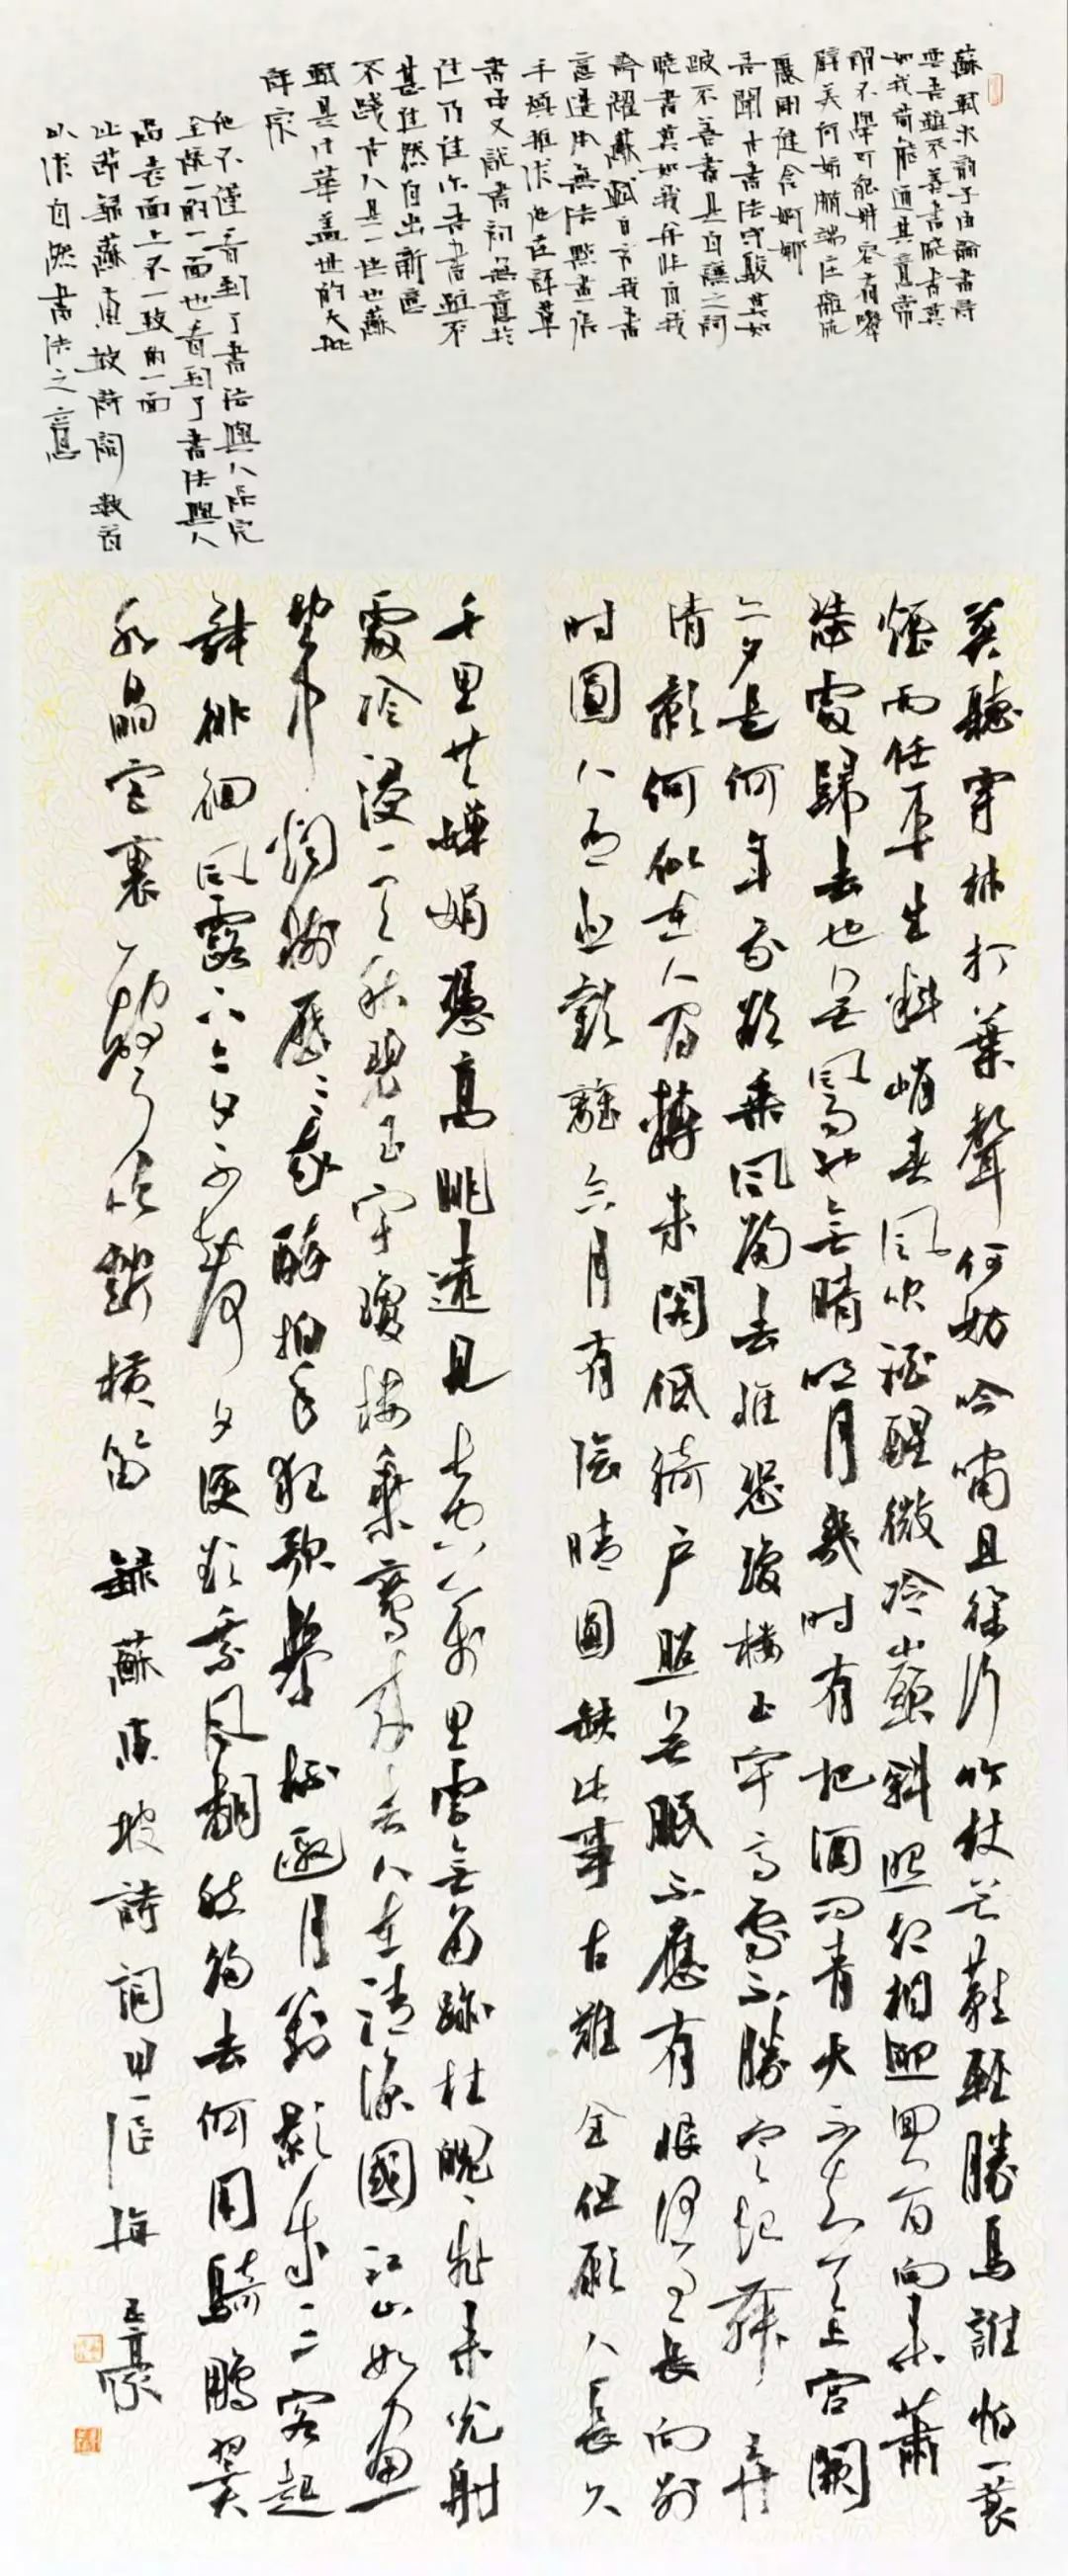 蘇軾次韻子由論書詩
云吾雖不善書曉書莫
如我苟能通其意常
謂不學可貌妍容有顰
璧美何妨橢端莊雜流
麗剛健含婀娜
吾聞古書法守駿莫如
跛不善書是自謙之詞
曉書莫如我并非自我
誇耀蘇軾自言我書
意造本無法點畫信
手煩推求他在評草
書中又說書初無意於
佳乃佳尔吾書雖不
甚佳然自出新意
不踐古人是一快也蘇
軾是才華蓋世的大批
評家
他不僅看到了書法與人品完
全統一的一面也看到了書法與人
品表面上不一致的一面
此節錄蘇東坡詩詞數首
以求自然書法之意
莫聽穿林打葉聲何妨吟嘯且徐行竹杖芒鞋輕勝馬誰怕一蓑
煙雨任平生料峭春風吹酒醒微冷山頭斜照却相迎回首向來蕭
瑟處歸去也無風雨也無晴明月幾時有把酒問青天不知天上宮闕
今夕是何年我欲乘風歸去惟恐瓊樓玉宇高處不勝寒起舞弄
清影何似在人間轉朱閣低綺戶照無眠不應有恨何事長向別
時圓人有悲歡離合月有陰晴圓缺此事古難全但願人長久
千里共嬋娟憑高眺遠見長空萬里雲無留跡桂魄飛來光射
處冷浸一天秋碧玉宇瓊樓乘鸞來去人在清涼國江山如畫
望中煙樹歷歷我醉拍手狂歌舉杯邀月對影成三客起
舞徘徊風露下今夕不知何夕便欲乘風翻然歸去何用騎鵬翼
水晶宮裏一聲吹斷橫笛 錄蘇東坡詩詞